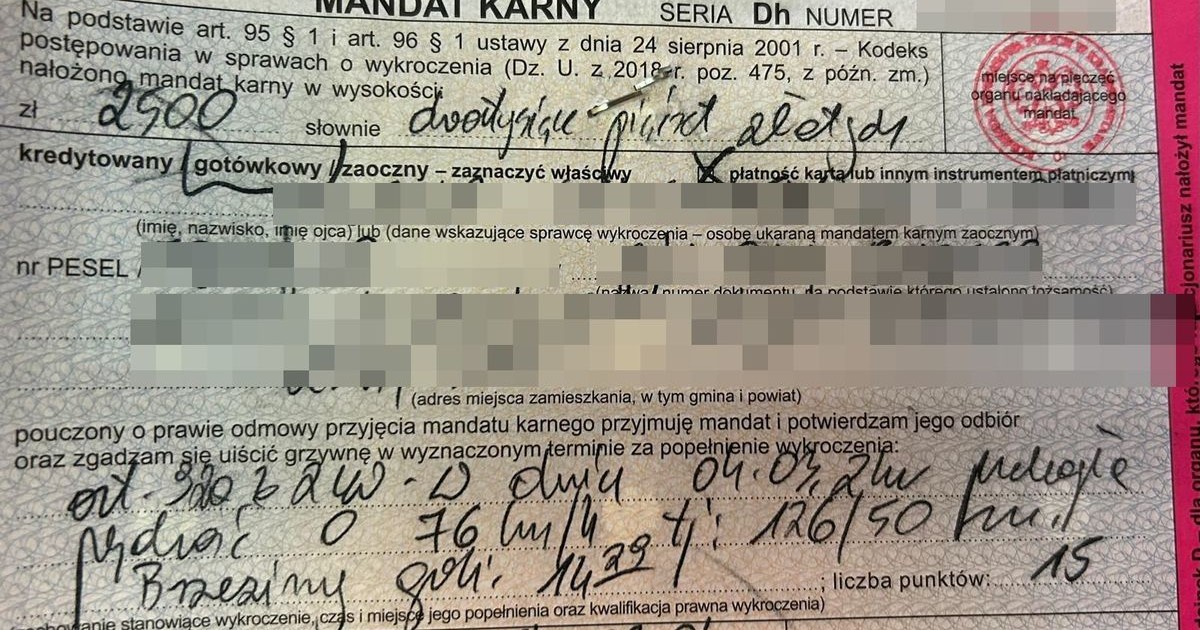 MANDAT KARNY SERIA Dh NUMER
Na podstawie art. 95 § 1 i art. 96 § 1 ustawy z dnia 24 sierpnia 2001 r. – Kodeks
postępowania w sprawach o wykroczenia (Dz. U. z 2018 r. poz. 475, z późn. zm.)
nałożono mandat karny w wysokości:
miejsce na pieczęć
organu nakładającego
mandat
zł 2500 słownie dwa tysiące pięćset złotych
kredytowany / gotówkowy / zaoczny – zaznaczyć właściwy X płatność kartą lub innym instrumentem płatniczym
(imię, nazwisko, imię ojca) lub (dane wskazujące sprawcę wykroczenia – osobę ukaraną mandatem karnym zaocznym)
nr PESEL /
(nazwa i numer dokumentu, na podstawie którego ustalono tożsamość)
(adres miejsca zamieszkania, w tym gmina i powiat)
pouczony o prawie odmowy przyjęcia mandatu karnego przyjmuję mandat i potwierdzam jego odbiór
oraz zgadzam się uiścić grzywnę w wyznaczonym terminie za popełnienie wykroczenia:
dnia 04.03.
o 76 km/h tj. 126/50
Brzeziny godz. 14 29 ; liczba punktów: 15
stanowiące wykroczenie, czas i miejsce jego popełnienia oraz kwalifikacja prawna wykroczenia)
cjonariusz nałożył mandat